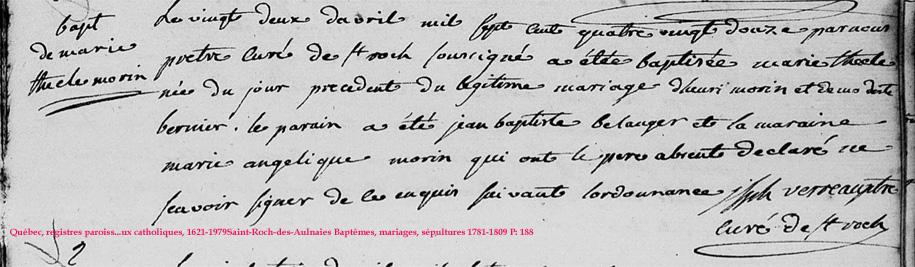 bapt
de marie
thecle morin
Le vingt deux davril mil sept cent quatre vingt douze par nous
pretre curé de St roch soussigné a étée baptisée marie thecle
née du jour precedent du legitime mariage dhenri morin et de modeste
bernier. le parain a été jean baptiste belanger et la maraine
marie angelique morin qui ont le pere absent declaré ne
scavoir signer de ce enquis suivant lordonnance jsph verreau ptre
curé de St roch
Québec, registres paroiss...ux catholiques, 1621-1979Saint-Roch-des-Aulnaies Baptêmes, mariages, sépultures 1781-1809 P: 188